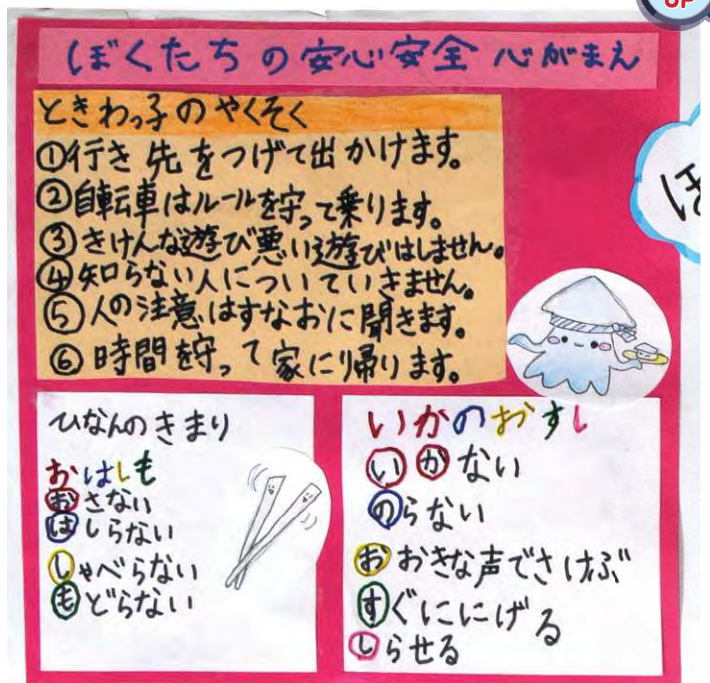 UP
ぼくたちの安心安全 心がまえ
ときわっ子のやくそく
①行き先をつげて出かけます。
②自転車はルールを守って乗ります。
③きけんな遊び悪い遊びはしません。
④知らない人についていきません。
⑤人の注意はすなおに聞きます。
⑥時間を守って家に帰ります。
ほ
ひなんのきまり
おはしも
おさない
はしらない
しゃべらない
もどらない
いかのおすし
いかない
のらない
おおきな声でさけぶ
すぐににげる
しらせる